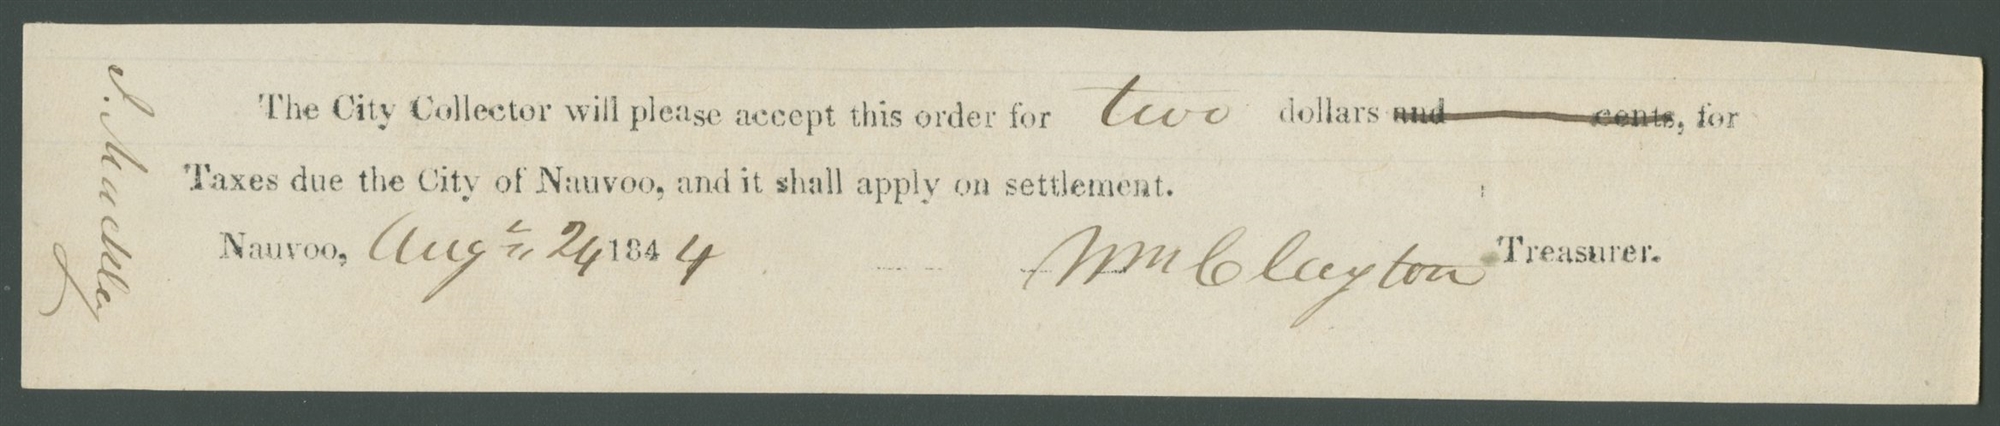 The City Collector will please accept this order for two dollars and cents, for
Taxes due the City of Nauvoo, and it shall apply on settlement.
Nauvoo, Augt 24 1844 Wm Clayton Treasurer.